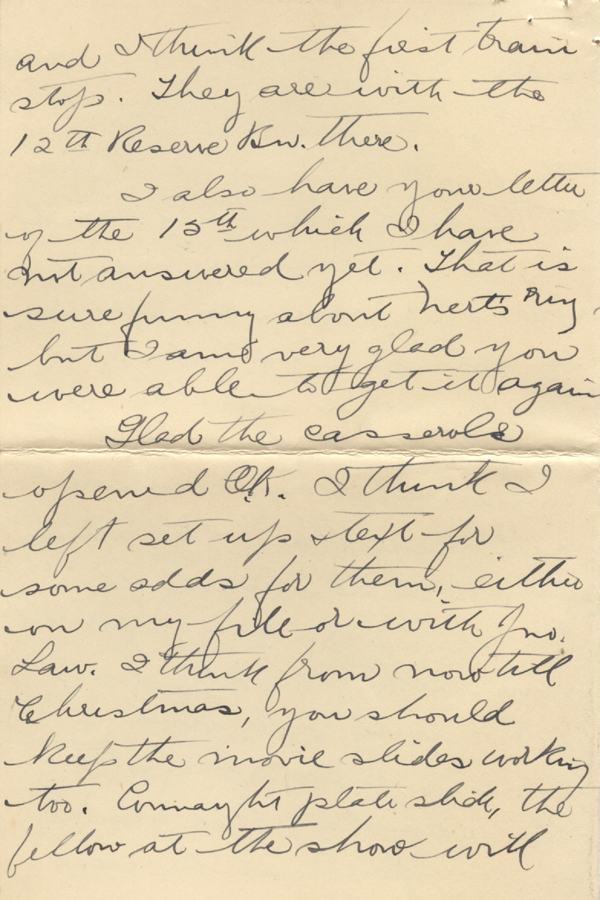 and I think the first train
stop. They are with the
12th Reserve Bn. there.
I also have your letter
of the 15th which I have
not answered yet. That is
sure funny about Nert's ring,
but I am very glad you
were able to get it again
Glad the casserole
opened O.K. I think I
left set up text for
some adds for them, either
on my file or with Jno.
Law. I think from now till
Christmas, you should
keep the movie slides working
too. Connaught plate slide, the
fellow at the show will